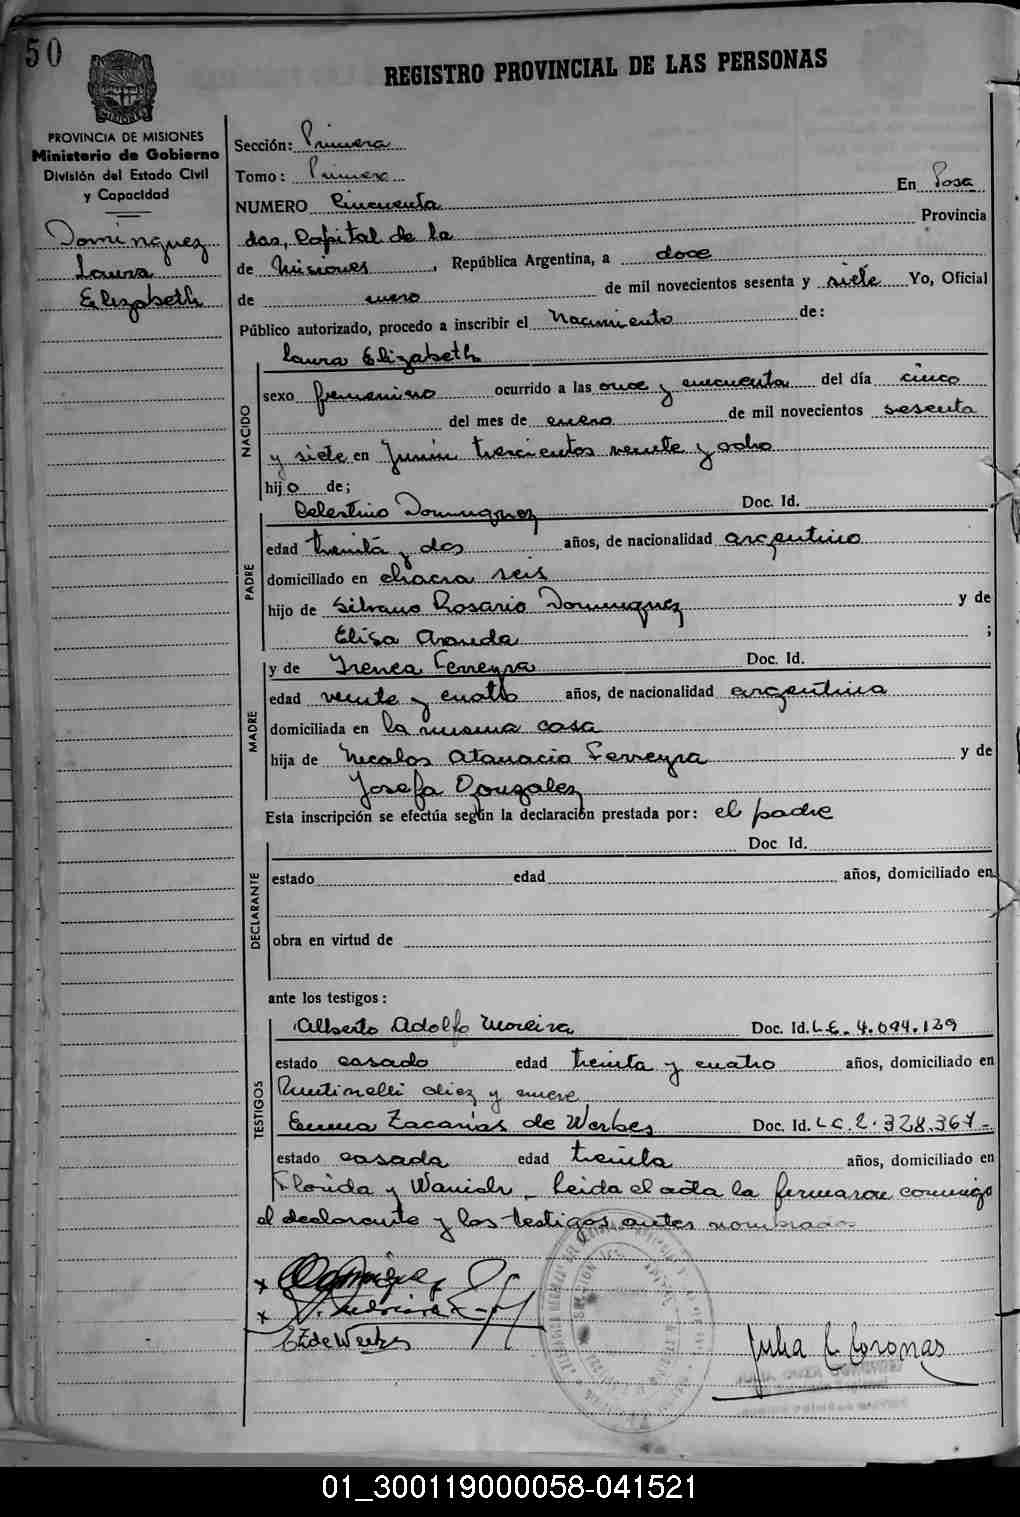 50
REGISTRO PROVINCIAL DE LAS PERSONAS
PROVINCIA DE MISIONES
Ministerio de Gobierno
División del Estado Civil
y Capacidad
Dominguez
Laura
Elizabeth
Sección: Primera
Tomo: Primero
En Posa
NUMERO Cincuenta
das, Capital de la Provincia
de Misiones, República Argentina, a doce
de enero de mil novecientos sesenta y siete Yo, Oficial
Público autorizado, procedo a inscribir el Nacimiento de:
Laura Elizabeth
NACIDO
sexo femenino ocurrido a las once y cincuenta del día cinco
del mes de enero de mil novecientos sesenta
y siete en Junín trescientos veinte y ocho
hijo de;
Celestino Dominguez Doc. Id.
PADRE
edad treinta y dos años, de nacionalidad argentino
domiciliado en chacra seis
hijo de Silvano Rosario Dominguez y de
Elisa Aranda ;
y de Irenea Ferreyra Doc. Id.
MADRE
edad veinte y cuatro años, de nacionalidad argentina
domiciliada en la misma casa
hija de Nicolas Atanacio Ferreyra y de
Josefa Gonzalez
Esta inscripción se efectúa según la declaración prestada por: el padre
Doc. Id.
DECLARANTE
estado edad años, domiciliado en
obra en virtud de
ante los testigos:
TESTIGOS
Alberto Adolfo Moreira Doc. Id. L.E. 4.094.129
estado casado edad treinta y cuatro años, domiciliado en
diez y nueve
Emma Zacarias de Werbes Doc. Id. L.C. 2.328.367-
estado casada edad treinta años, domiciliado en
Florida y - Leida el acta la firmaron conmigo
el declarante y los testigos antes nombrados
Julia Coronas
01_300119000058-041521